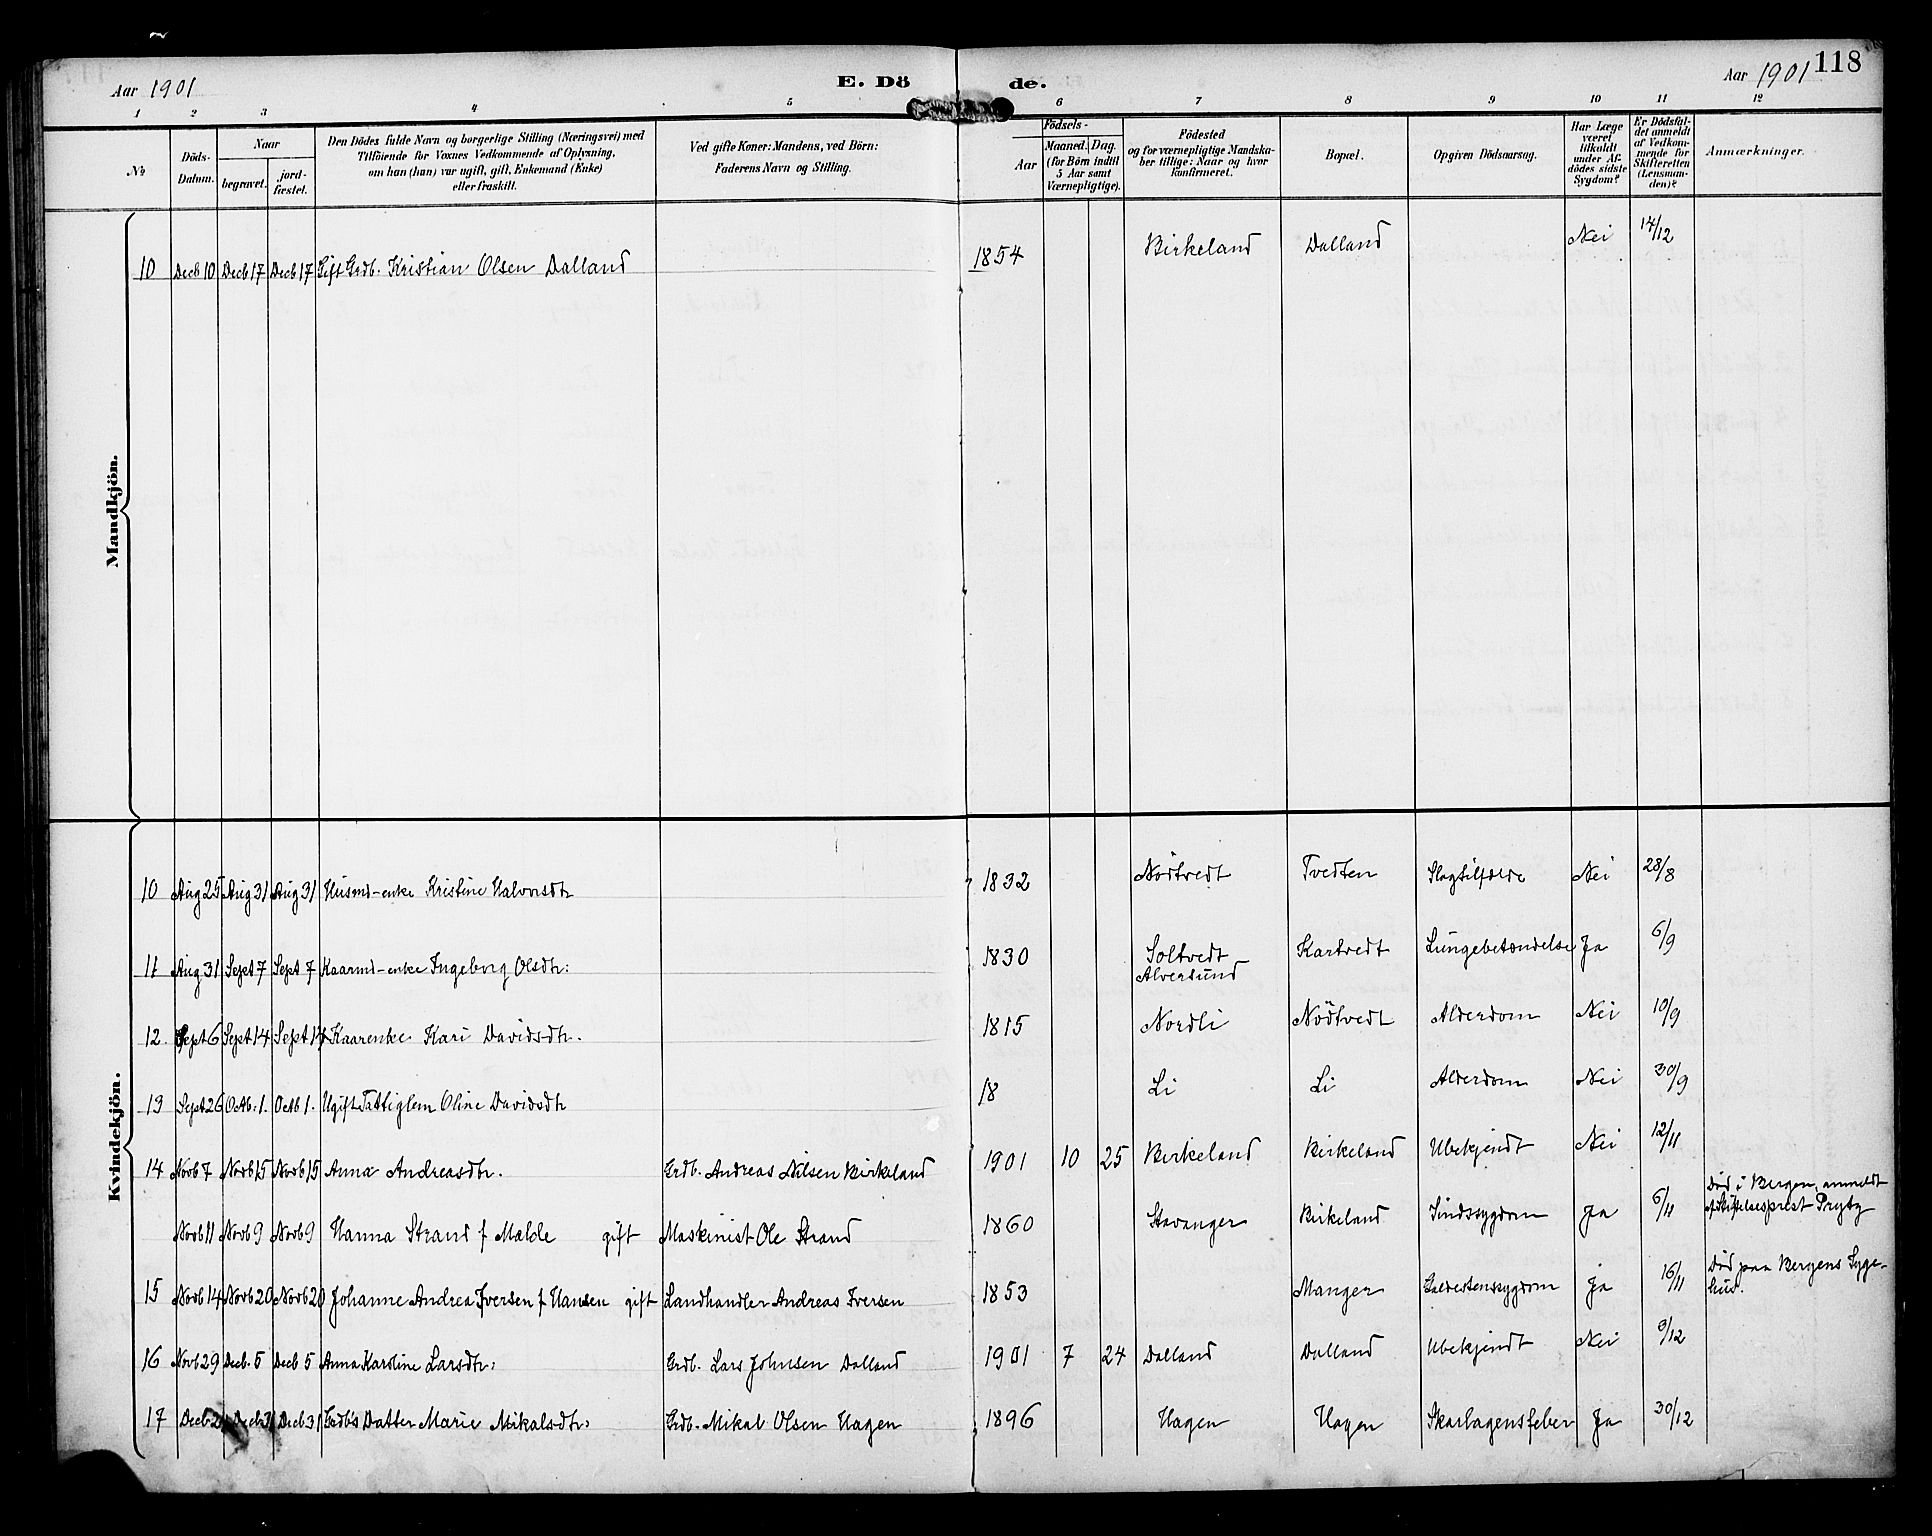 Aar 1901
E. Döde.
Aar 1901 118
1 2 3 4 5 6 7 8 9 10 11 12
No
Döds-Datum.
Naar
begravet.
jord-fæstet.
Den Dödes fulde Navn og borgerlige Stilling (Næringsvei) med
Tilföiende for Voxnes Vedkommende af Oplysning,
om han (hun) var ugift, gift, Enkemand (Enke)
eller fraskilt.
Ved gifte Koner: Mandens, ved Börn:
Faderens Navn og Stilling.
Födsels-
Aar
Maaned. Dag.
(for Börn indtil
5 Aar samt
Værnepligtige).
Födested
og for værnepligtige Mandska-
ber tillige: Naar og hvor
konfirmeret.
Bopæl.
Opgiven Dödsaarsag.
Har Læge
været
tilkaldt
under Af-
dödes sidste
Sygdom?
Er Dödsfal-
det anmeldt
af Vedkom-
mende for
Skifteretten
(Lensman-
den)?
Anmærkninger.
Mandkjön.
10 Decb 10 Decb 17 Decb 17 Gift Grdb. Kristian Olsen Dalland 1854 Birkeland Dalland Nei 14/12
Kvindekjön.
10 Aug 25 Aug 31 Aug 31 Husmd-enke Kristine Halvorsdtr 1832 Nötvedt Tvedten Slagtilfælde Nei 28/8
11 Aug 31 Sept 7 Sept 7 Kaarmd-enke Ingeborg Olsdtr: 1830 Soltvedt Kartvedt Lungebetændelse Ja 6/9
Alversund
12. Sept 6 Sept 14 Sept 14 Kaarenke Kari Davidsdtr. 1815 Nordli Nödtvedt Alderdom Nei 10/9
13 Sept 26 Octb. 1. Octb 1. Ugift Fattiglem Oline Davidsdtr 18 Li Li Alderdom Nei 30/9
14 Novb 7 Novb 15 Novb 15 Anna Andreasdtr. Grdb. Andreas Nilsen Birkeland 1901 10 25 Birkeland Birkeland Ubekjendt Nei 12/11
Novb 11 Novb 9 Novb 9 Hanna Strand f Malde gift Maskinist Ole Strand 1860 Stavanger Birkeland Sindssygdom Ja 6/11 Död i Bergen, anmeldt
af Stiftelsesprest Prytz
15 Novb 14 Novb 20 Novb 20 Johanne Andrea Iversen f Hansen gift Landhandler Andreas Iversen 1853 Manger Galdestenssygdom Ja 16/11 Död paa Bergens Syge-
hus.
16 Novb 29 Decb. 5 Decb 5 Anna Karoline Larsdtr: Grdb. Lars Johnsen Dalland 1901 7 24 Dalland Dalland Ubekjendt Nei 9/12
17 Decb Decb 31 Decb 31 Grdb's Datter Marie Mikalsdtr: Grdb. Mikal Olsen Hagen 1896 Hagen Hagen Skarlagensfeber Ja 30/12